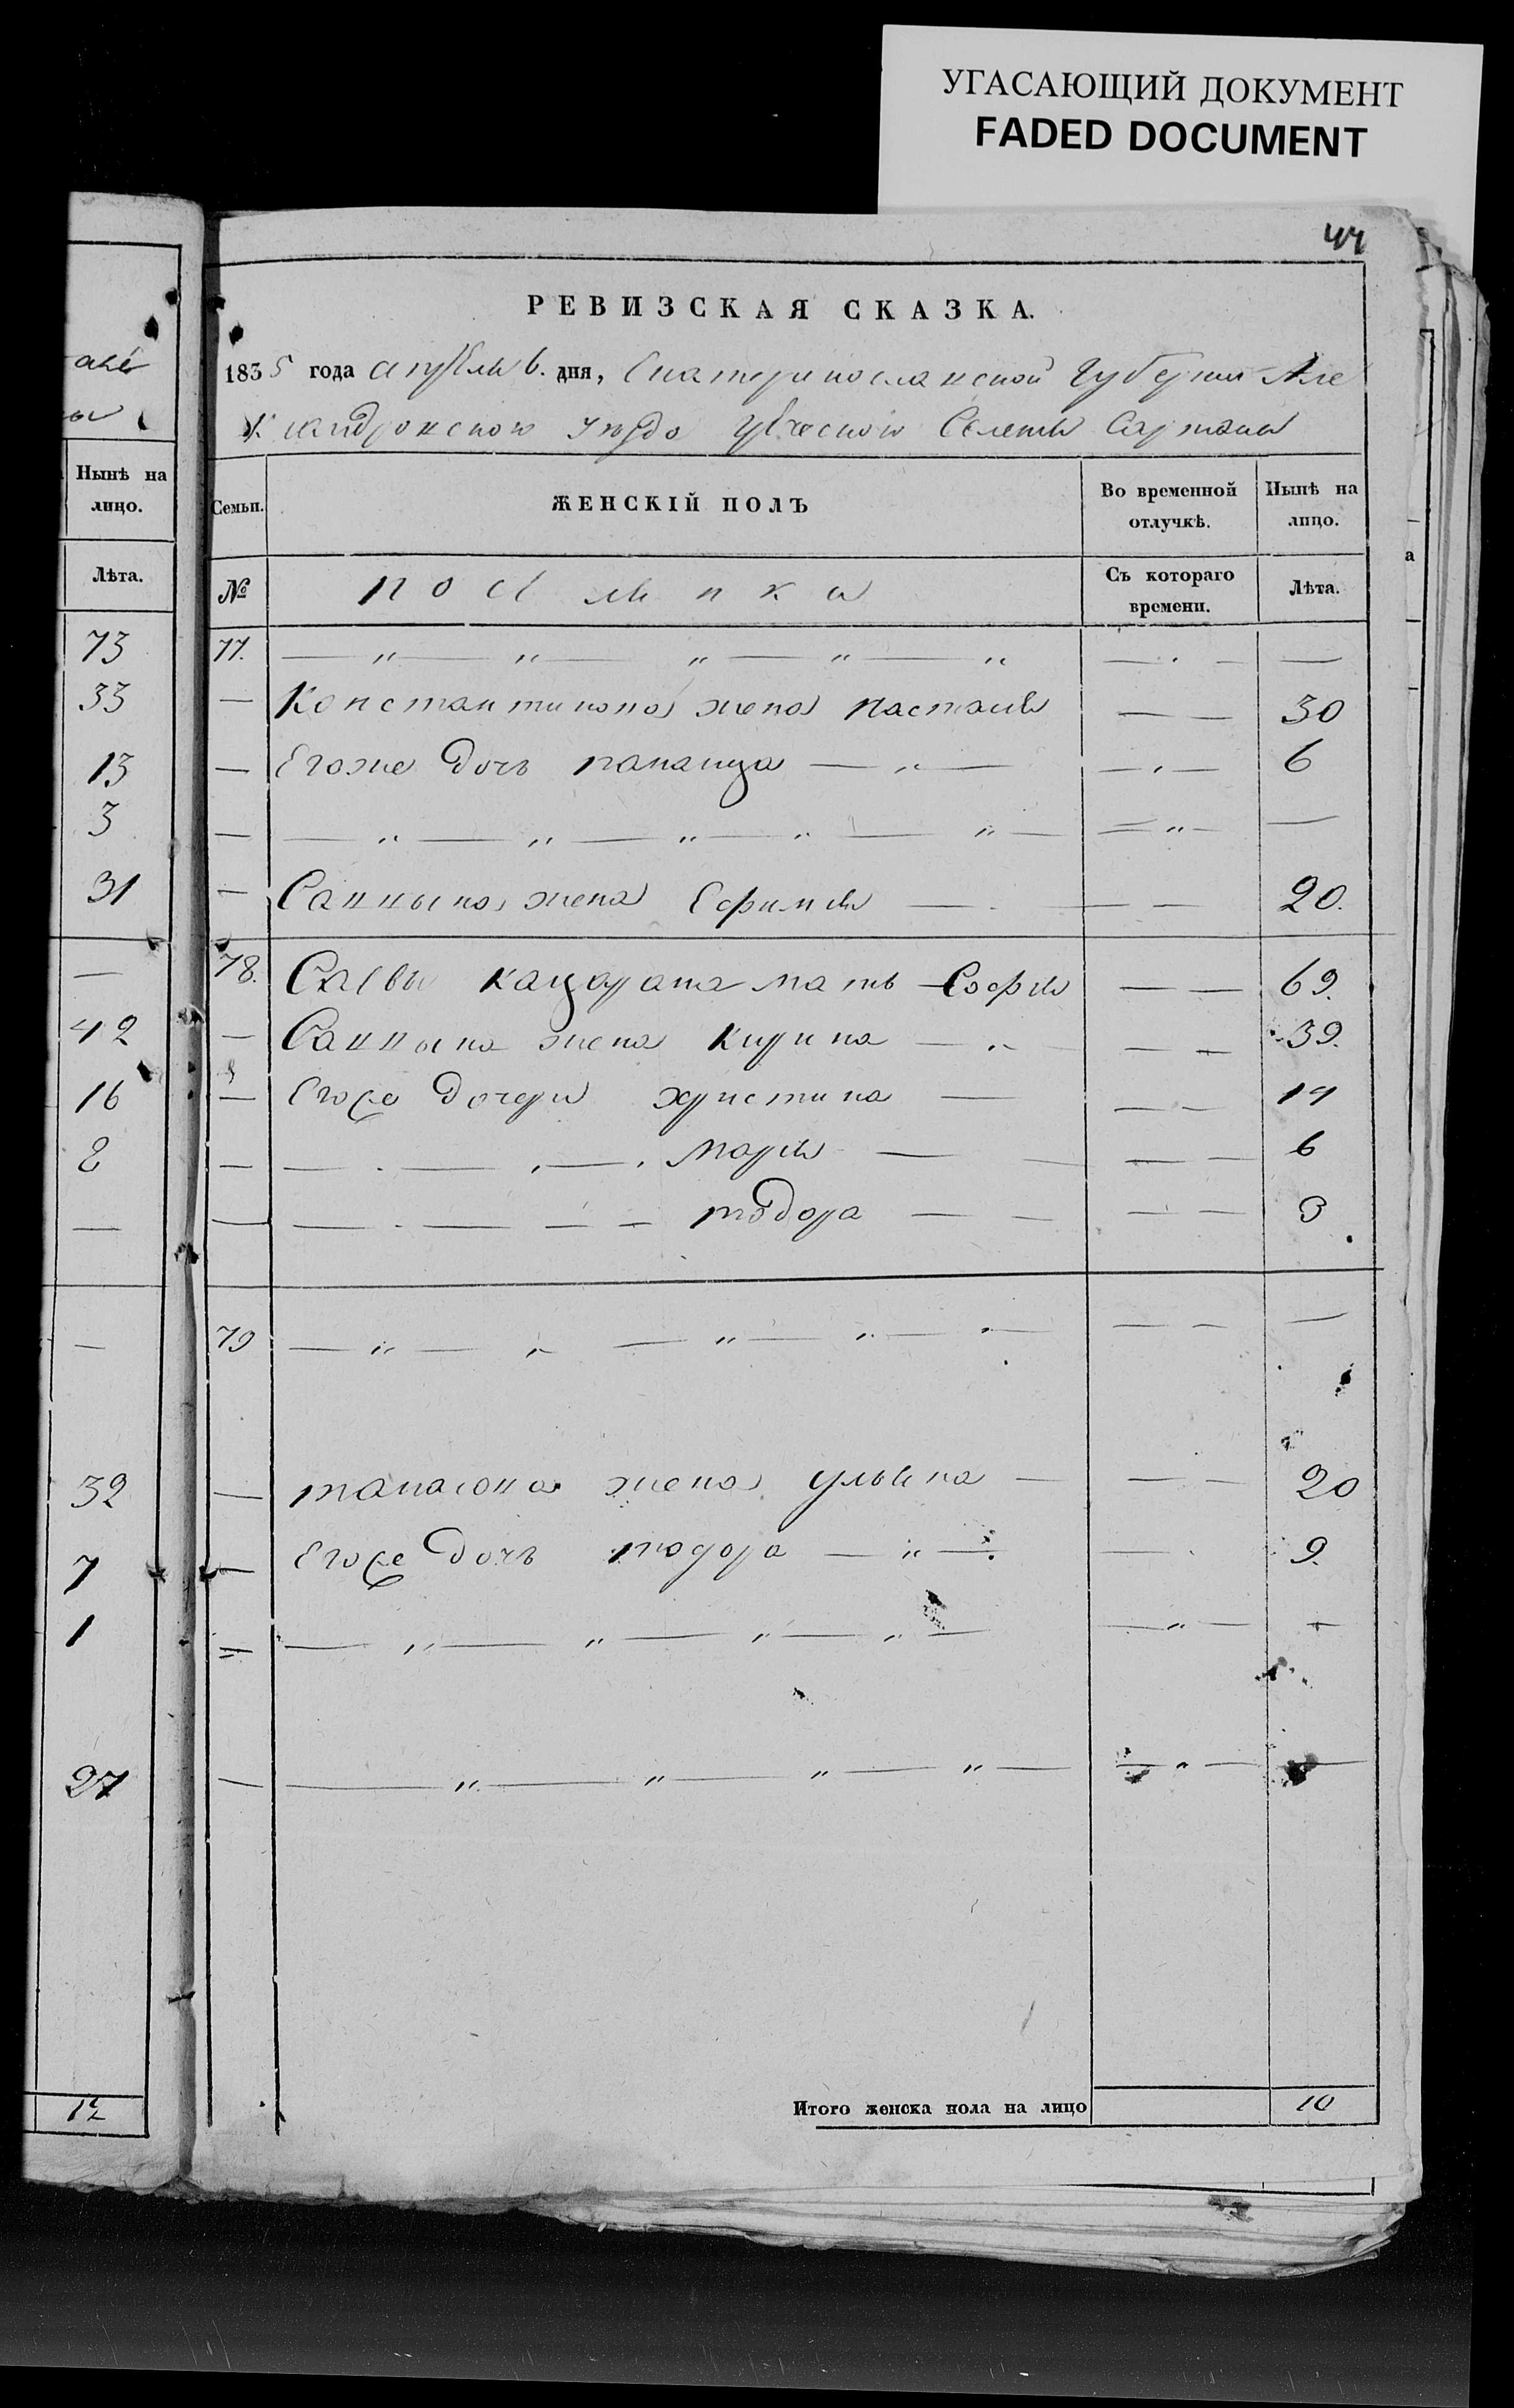 УГАСАЮЩИЙ ДОКУМЕНТ
FADED DOCUMENT
44
Нынѣ на
лицо.
Лѣта.
73
33
13
3
31
—
42
16
2
—
—
32
7
1
27
12
РЕВИЗСКАЯ СКАЗКА.
1835 года апреля 6. дня, Екатеринославской Губернии Але
ксандровского уезда Греческого Селения Сартаны
Семьи. ЖЕНСКІЙ ПОЛЪ Во временной отлучкѣ. Нынѣ на лицо.
№ поселянка Съ котораго времени. Лѣта.
77. — „ — „ — „ — „ — „ — . — —
— Константинова жена Настасия — — 30
— Егоже дочь панаица — „ — — . — 6
— — „ — „ — „ — „ — „ — — „ — —
— Саввына жена Ефимия — — — 20.
78. Саввы мать София — — 69.
— Саввына жена Кирина — . — — — 39.
— Егоже дочери христина — — — 14
— — . — . — . мария — — — — 6
— — . — — — тодора — — — — 3
79 — „ — „ — „ — „ — — — —
— жена ульяна — — — 20
— Егоже дочь тодора — „ — — . 9.
— — „ — „ — „ — „ — — „ — —
— — „ — „ — „ — „ — — „ — —
Итого женска пола на лицо 10